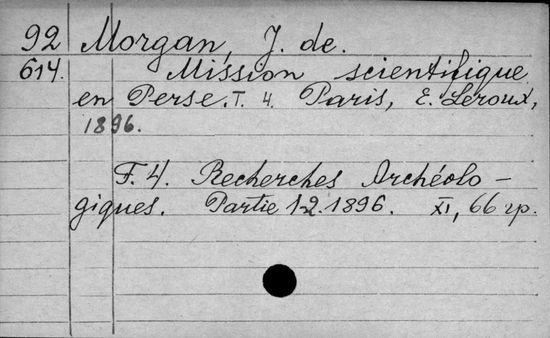 92 Morgan, J. de.
614. Mission scientifique
en Perse. T. 4. Paris, E. Leroux,
1896.
T. 4. Recherches Archéolo-
giques. Partie 1-2. 1896. XI, 66 гр.